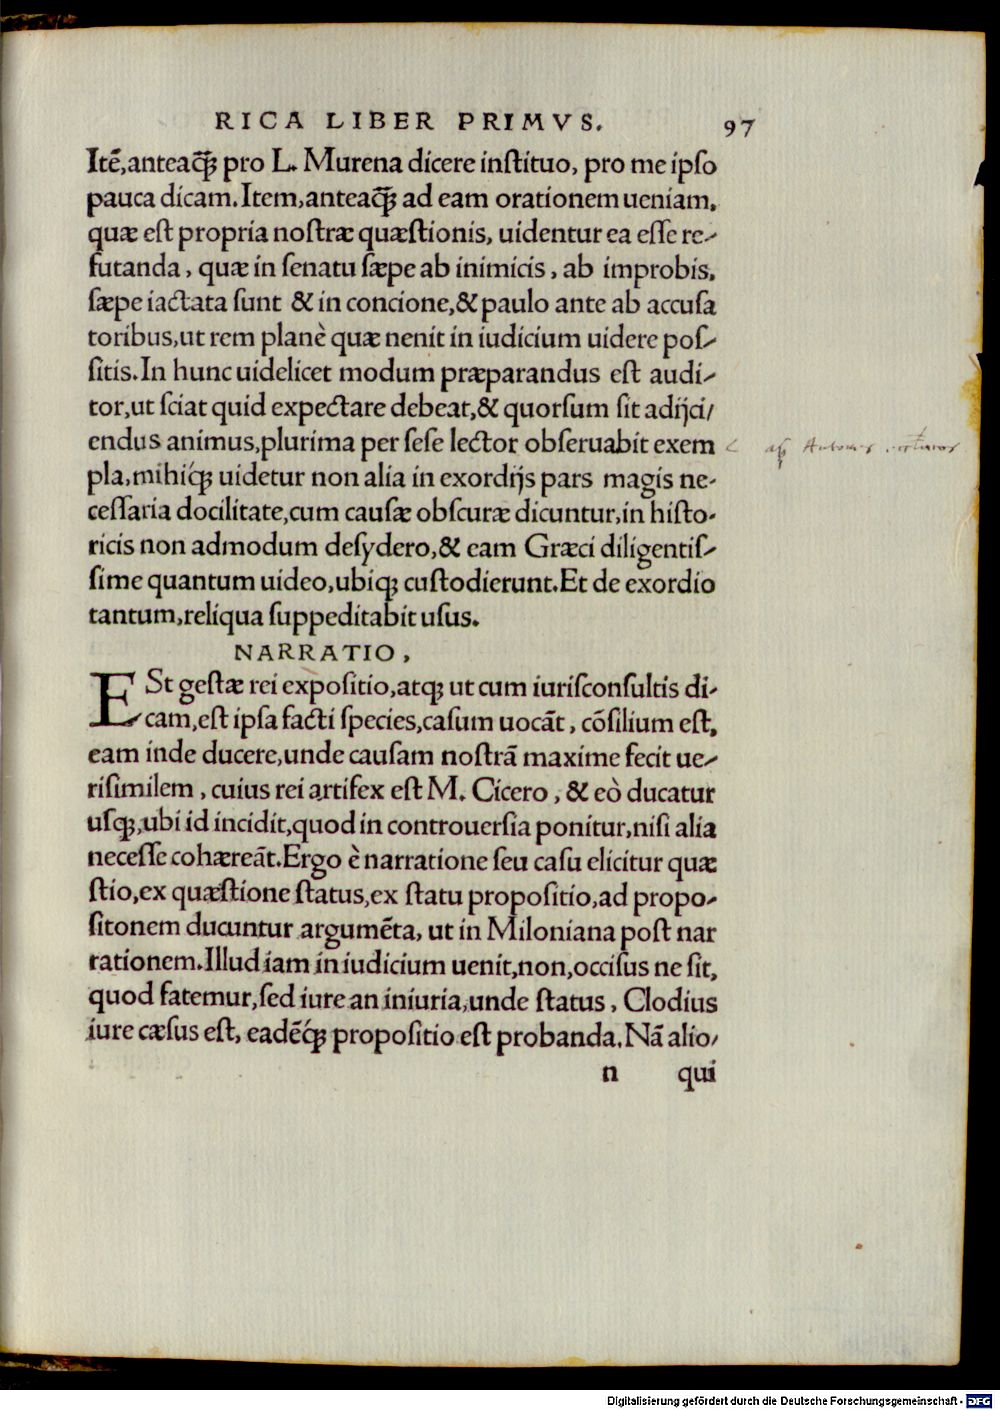 RICA LIBER PRIMVS. 97
Itē,anteaq̃ꝫ pro L. Murena dicere instituo, pro me ipso
pauca dicam.Item,anteaq̃ꝫ ad eam orationem ueniam,
quæ est propria nostræ quæstionis, uidentur ea esse re-
futanda, quæ in senatu sæpe ab inimicis, ab improbis,
sæpe iactata sunt & in concione,& paulo ante ab accusa
toribus,ut rem planè quæ nenit in iudicium uidere pos-
sitis.In hunc uidelicet modum præparandus est audi-
tor,ut sciat quid expectare debeat,& quorsum sit adijci/
endus animus,plurima per sese lector obseruabit exem
pla,mihiq́ꝫ uidetur non alia in exordijs pars magis ne-
cessaria docilitate,cum causæ obscuræ dicuntur,in histo-
ricis non admodum desydero,& eam Græci diligentis-
sime quantum uideo,ubiqꝫ custodierunt.Et de exordio
tantum,reliqua suppeditabit usus.
NARRATIO,
ESt gestæ rei expositio,atqꝫ ut cum iurisconsultis di-
cam,est ipsa facti species,casum uocāt, cōsilium est,
eam inde ducere,unde causam nostrā maxime fecit ue-
risimilem, cuius rei artifex est M. Cicero, & eò ducatur
usqꝫ,ubi id incidit,quod in controuersia ponitur,nisi alia
necesse cohæreāt.Ergo è narratione seu casu elicitur quæ
stio,ex quæstione status,ex statu propositio,ad propo-
sitonem ducuntur argumēta, ut in Miloniana post nar
rationem.Illud iam in iudicium uenit,non,occisus ne sit,
quod fatemur,sed iure an iniuria,unde status, Clodius
iure cæsus est, eadēq́ꝫ propositio est probanda.Nā alio/
n qui
Digitalisierung gefördert durch die Deutsche Forschungsgemeinschaft - DFG